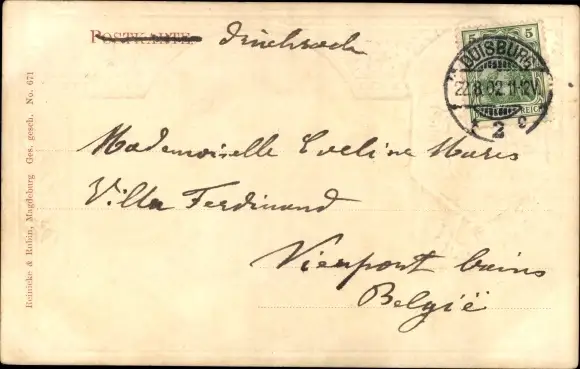 POSTKARTE Drucksache
5 5
DUISBURG
22.8.02.11-12V
* 2 c
REICH
Mademoiselle Eveline Mares
Villa Ferdinand
Nieuport bains
België
Reinicke & Rubin, Magdeburg Ges. gesch. No. 671